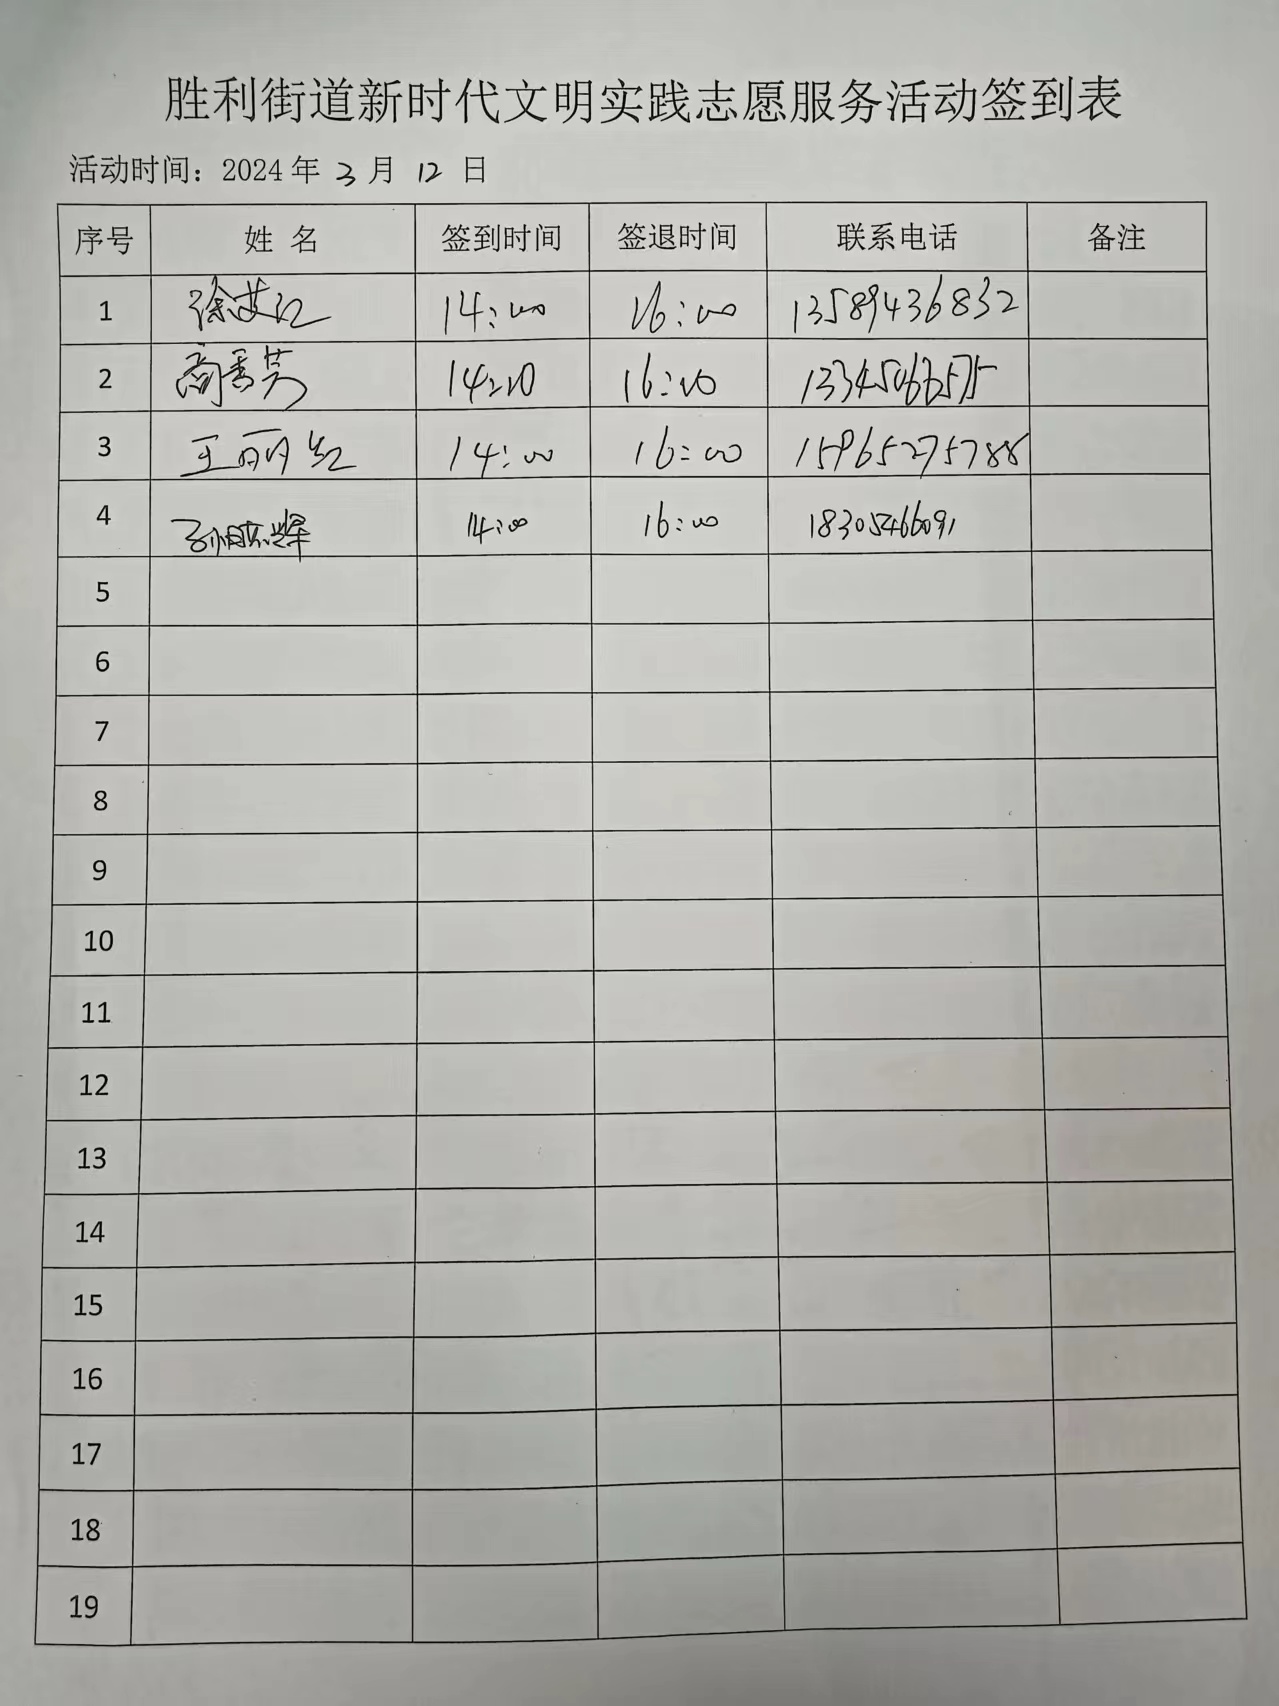 胜利街道新时代文明实践志愿服务活动签到表
活动时间：2024 年 3 月 12 日
序号 姓 名 签到时间 签退时间 联系电话 备注
1 14:00 16:00 13589436832
2 14:00 16:00
3 王丽红 14:00 16:00 15965275788
4 14:00 16:00 18305466091
5
6
7
8
9
10
11
12
13
14
15
16
17
18
19